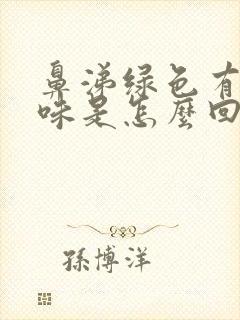 鼻涕绿色有
味是怎麼回
孫博洋